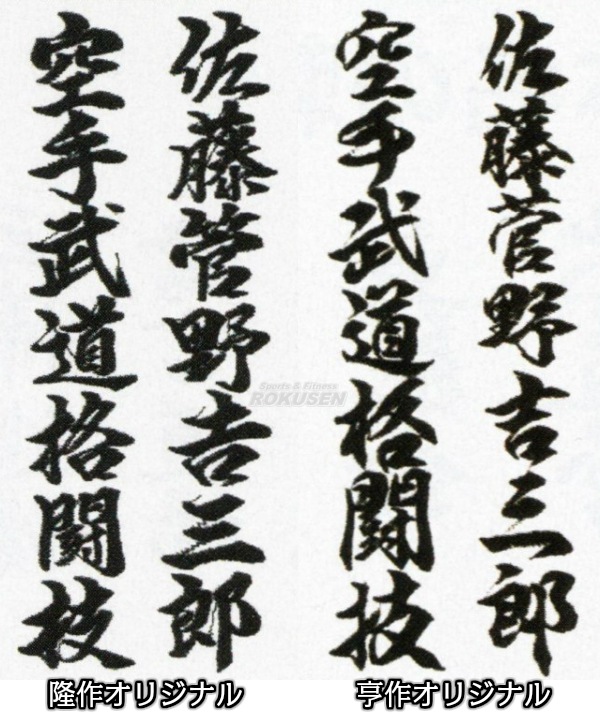 佐藤管野吉三郎
空手武道格闘枝
隆作オリジナル
佐藤菅野吉三郎
空手武道格闘技
亨作オリジナル
Sports & Fitness
ROKUSEN